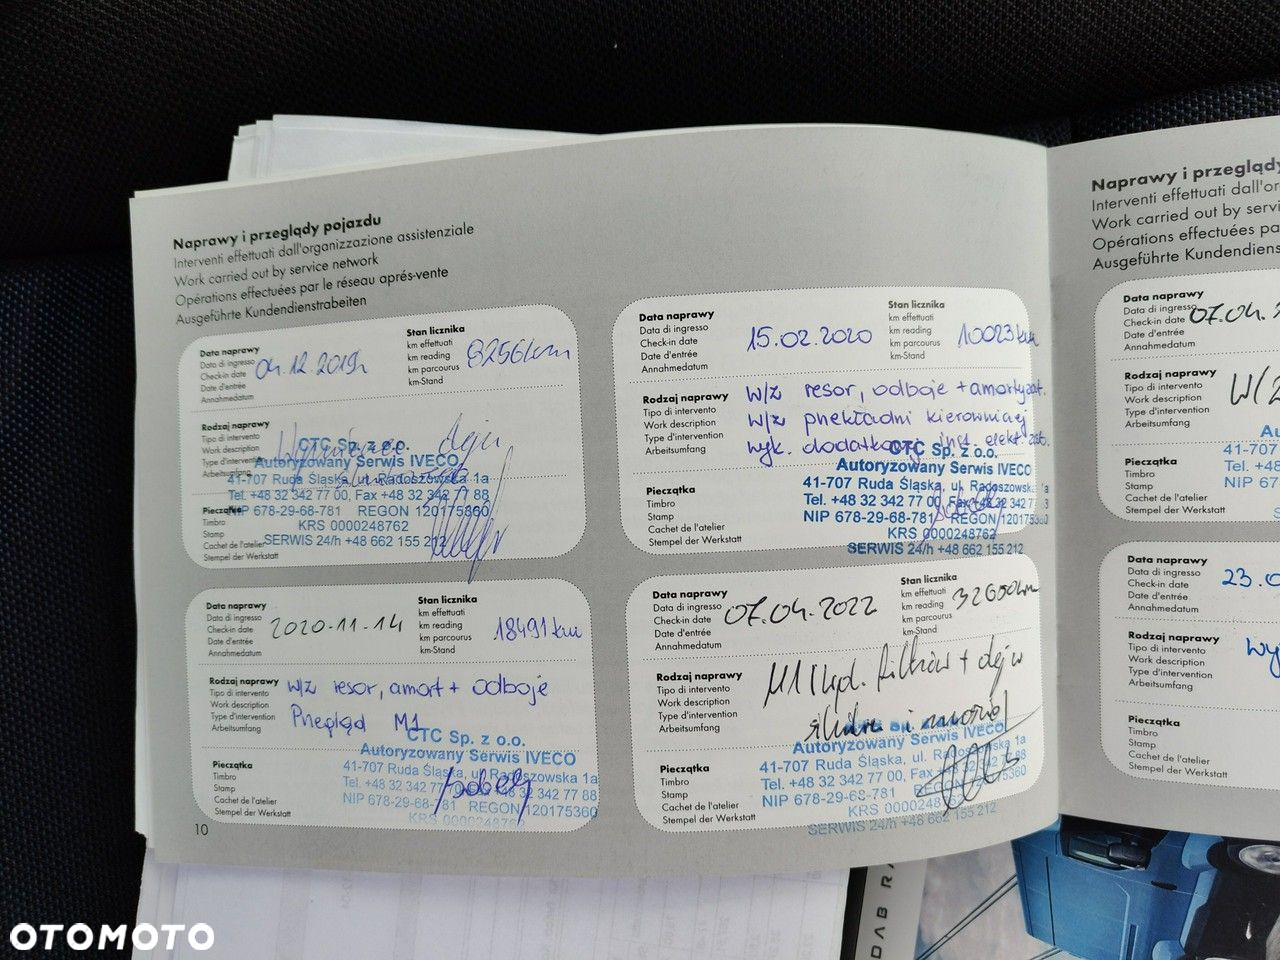 Naprawy i przeglądy pojazdu
Interventi effettuati dall'organizzazione assistenziale
Work carried out by service network
Opérations effectuées par le réseau aprés-vente
Ausgeführte Kundendienstrabeiten
Data naprawy
Data di ingresso
Check-in date
Date d'entrée
Annahmedatum
04.12.2019r
Stan licznika
km effettuati
km reading
km parcourus
km-Stand
8256km
Rodzaj naprawy
Tipo di intervento
Work description
Type d'intervention
Arbeitsumfang
Wymieniece deju
CTC Sp. z o.o.
Autoryzowany Serwis IVECO
41-707 Ruda Śląska, ul. Radoszowska 1a
Tel. +48 32 342 77 00, Fax +48 32 342 77 88
NIP 678-29-68-781 REGON 120175360
KRS 0000248762
SERWIS 24/h +48 662 155 212
Pieczątka
Timbro
Stamp
Cachet de l'atelier
Stempel der Werkstatt
Data naprawy
Data di ingresso
Check-in date
Date d'entrée
Annahmedatum
15.02.2020
Stan licznika
km effettuati
km reading
km parcourus
km-Stand
10023km
Rodzaj naprawy
Tipo di intervento
Work description
Type d'intervention
Arbeitsumfang
W/z resor, odboje + amortyzat.
W/z przekładni kierowniczej
wyk. dodatkowej inst. elekt.
CTC Sp. z o.o.
Autoryzowany Serwis IVECO
41-707 Ruda Śląska, ul. Radoszowska 1a
Tel. +48 32 342 77 00, Fax +48 32 342 77
NIP 678-29-68-781 REGON 120175360
KRS 0000248762
SERWIS 24/h +48 662 155 212
Pieczątka
Timbro
Stamp
Cachet de l'atelier
Stempel der Werkstatt
Data naprawy
Data di ingresso
Check-in date
Date d'entrée
Annahmedatum
2020-11-14
Stan licznika
km effettuati
km reading
km parcourus
km-Stand
18491km
Rodzaj naprawy
Tipo di intervento
Work description
Type d'intervention
Arbeitsumfang
W/z resor, amort + odboje
Przegląd M1
CTC Sp. z o.o.
Autoryzowany Serwis IVECO
41-707 Ruda Śląska, ul. Radoszowska 1a
Tel. +48 32 342 77 00, Fax +48 32 342 77 88
NIP 678-29-68-781 REGON 120175360
KRS 0000248762
Pieczątka
Timbro
Stamp
Cachet de l'atelier
Stempel der Werkstatt
Data naprawy
Data di ingresso
Check-in date
Date d'entrée
Annahmedatum
07.04.2022
Stan licznika
km effettuati
km reading
km parcourus
km-Stand
32650km
Rodzaj naprawy
Tipo di intervento
Work description
Type d'intervention
Arbeitsumfang
M1 kpl. filtrów + oleju
silnika i
Autoryzowany Serwis IVECO
41-707 Ruda Śląska, ul. Radoszowska 1a
Tel. +48 32 342 77 00, Fax
NIP 678-29-68-781
KRS 0000248762
SERWIS 24/h +48 662 155 212
Pieczątka
Timbro
Stamp
Cachet de l'atelier
Stempel der Werkstatt
10
Naprawy i przeglądy
Interventi effettuati dall'or
Work carried out by servi
Opérations effectuées pa
Ausgeführte Kundendiens
Data naprawy
Data di ingresso
Check-in date
Date d'entrée
Annahmedatum
07.04.
Rodzaj naprawy
Tipo di intervento
Work description
Type d'intervention
Arbeitsumfang
W/z
Au
41-707
Tel. +4
NIP 67
Pieczątka
Timbro
Stamp
Cachet de l'atelier
Stempel der Werkstatt
Data naprawy
Data di ingresso
Check-in date
Date d'entrée
Annahmedatum
23.0
Rodzaj naprawy
Tipo di intervento
Work description
Type d'intervention
Arbeitsumfang
wy
Pieczątka
Timbro
Stamp
Cachet de l'atelier
Stempel der Werkstatt
DAB RA
OTOMOTO